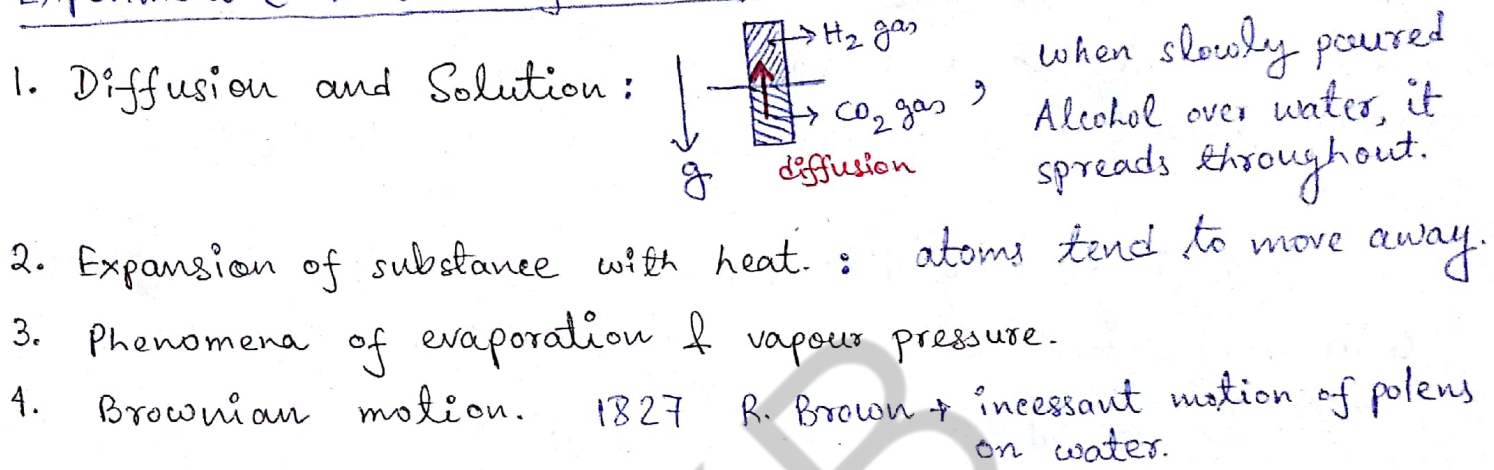 1. Diffusion and Solution :
g
H2 gas
CO2 gas ,
diffusion
when slowly poured
Alcohol over water, it
spreads throughout.
2. Expansion of substance with heat. : atoms tend to move away.
3. Phenomena of evaporation & vapour pressure.
4. Brownian motion. 1827 R. Brown → incessant motion of polens
on water.